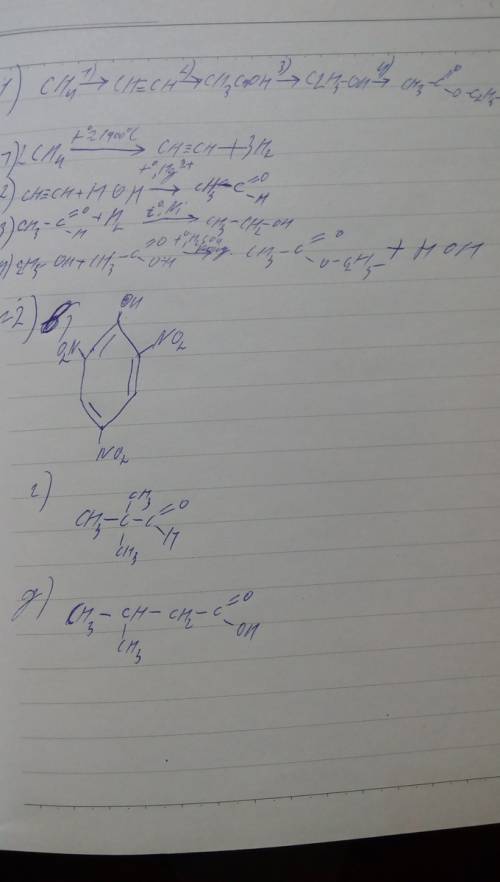 1) CH4 1)→ CH≡CH 2)→ CH3COH 3)→ C2H5-OH 4)→ CH3-C=O O-C2H5
1) 2CH4 t° 1500°C → CH≡CH + 3H2
2) CH≡CH + HOH t°, Hg2+ → CH3-C=O H
3) CH3-C=O H + H2 t°, Ni → CH3-CH2-OH
4) C2H5OH + CH3-C=O OH → CH3-C=O O-C2H5 + HOH
2) в)
OH
O2N
NO2
NO2
г)
CH3
CH3-C-C=O
H
CH3
д)
CH3-CH-CH2-C=O
OH
CH3